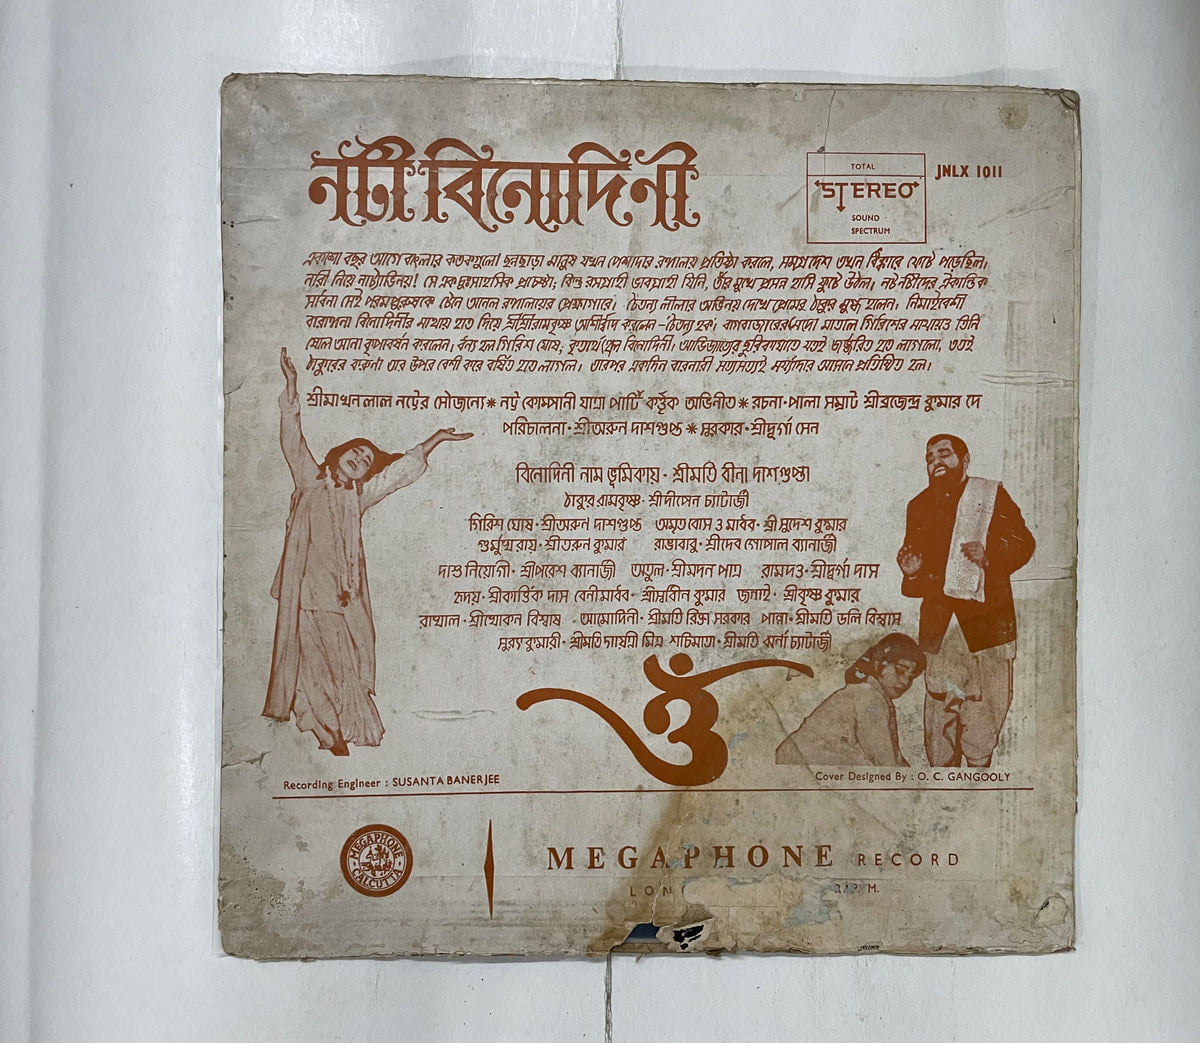 নটী বিনোদিনী
TOTAL
STEREO
SOUND
SPECTRUM
JNLX 1011
একশো বছর আগে বাংলার কতকগুলো ছন্নছাড়া মানুষ যখন পেশাদার রঙ্গালয় প্রতিষ্ঠা করলে, সমগ্র দেশ তখন ধিক্কারে ফেটে পড়েছিল।
নারী নিয়ে নাট্যাভিনয়! সে এক দুঃসাহসিক প্রচেষ্টা; কিন্তু রসগ্রাহী ভাবগ্রাহী যিনি, তাঁর মুখে প্রসন্ন হাসি ফুটে উঠল। নটনটীদের ঐকান্তিক
সাধনা সেই পরমপুরুষকে টেনে আনল রঙ্গালয়ের প্রেক্ষাগারে। চৈতন্য লীলার অভিনয় দেখে প্রেমের ঠাকুর মুগ্ধ হলেন। নিমাইবেশী
বারাঙ্গনা বিনোদিনীর মাথায় হাত দিয়ে শ্রীশ্রীরামকৃষ্ণ আশীর্বাদ করলেন – চৈতন্য হক। বাগবাজারের মাতাল গিরিশের মাথায়ও তিনি
ষোল আনা কৃপাবর্ষন করলেন। ধন্য হল গিরিশ ঘোষ, কৃতার্থ হল বিনোদিনী, আভিজাত্যের ছুরিকাঘাতে যতই জর্জ্জরিত হতে লাগলো, ততই
ঠাকুরের করুনা তার উপর বেশী করে বর্ষিত হতে লাগল। তারপর একদিন বারনারী সত্যসত্যই মর্য্যাদার আসনে প্রতিষ্ঠিত হল।
শ্রীমাখনলাল নট্টের সৌজন্যে * নট্ট কোম্পানী যাত্রা পার্টি কর্ত্তৃক অভিনীত * রচনা • পালা সম্রাট শ্রীব্রজেন্দ্র কুমার দে
পরিচালনা • শ্রীঅরুন দাশগুপ্ত * সুরকার • শ্রীদুর্গা সেন
বিনোদিনী নাম ভূমিকায় • শ্রীমতি বীনা দাশগুপ্তা
ঠাকুর রামকৃষ্ণ • শ্রীদীপেন চ্যাটার্জী
গিরিশ ঘোষ • শ্রীঅরুন দাশগুপ্ত অমৃত বোস ও মাধব • শ্রী সুদেশ কুমার
গুর্মুখ রায় • শ্রীতরুন কুমার রাঙাবাবু • শ্রীদেব গোপাল ব্যানার্জী
দাশু নিয়োগী • শ্রীপরেশ ব্যানার্জী অতুল • শ্রীমদন পাত্র রামদত্ত • শ্রীদুর্গা দাস
হৃদয় • শ্রীকার্ত্তিক দাস বেনীমাধব • শ্রীস্বাধীন কুমার জগাই • শ্রীকৃষ্ণ কুমার
রাখাল • শ্রীখোকন বিশ্বাষ আমোদিনী • শ্রীমতি রিক্তা সরকার পান্না • শ্রীমতি ডলি বিশ্বাস
সুরৎকুমারী • শ্রীমতি গায়ত্রী মিত্র শচিমাতা • শ্রীমতি ঝর্না চ্যাটার্জী
ওঁ
Recording Engineer : SUSANTA BANERJEE
Cover Designed By : O. C. GANGOOLY
MEGAPHONE
CALCUTTA
MEGAPHONE RECORD